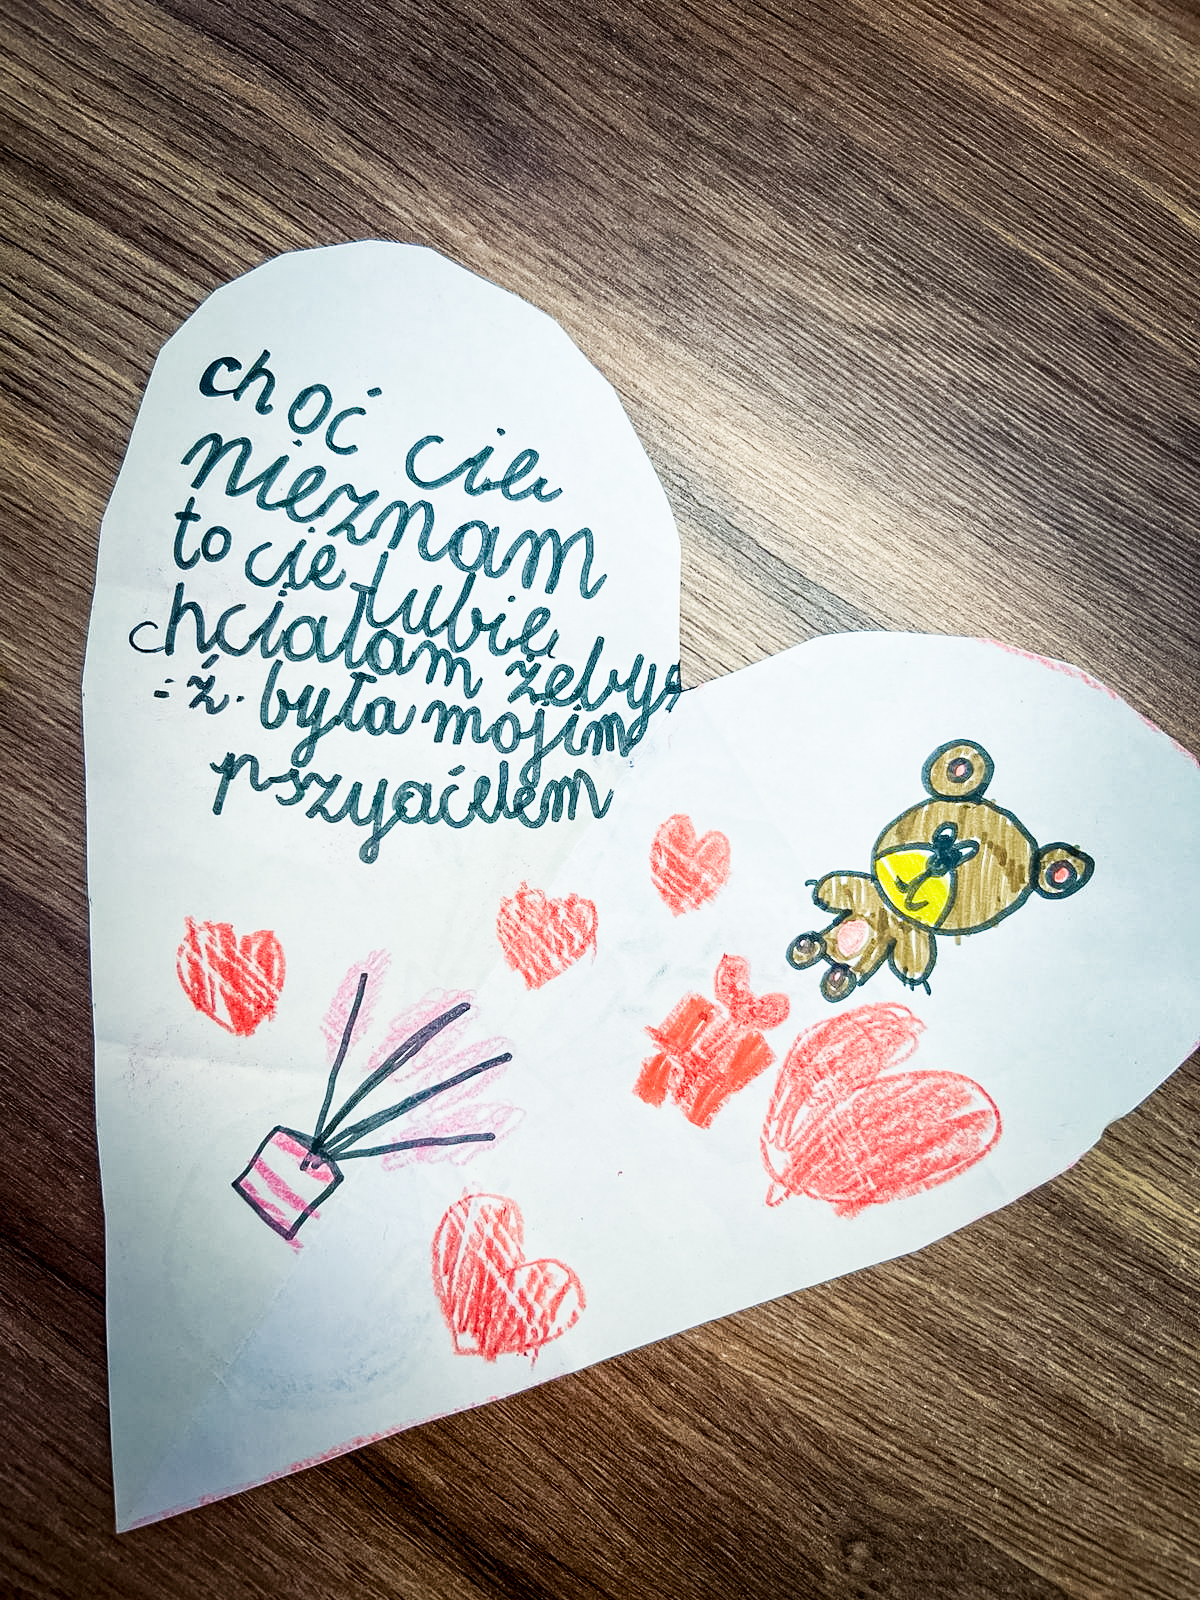 choć cię
nieznam
to cię lubię
chciałam żebyś
była mojim
pszyaćelem